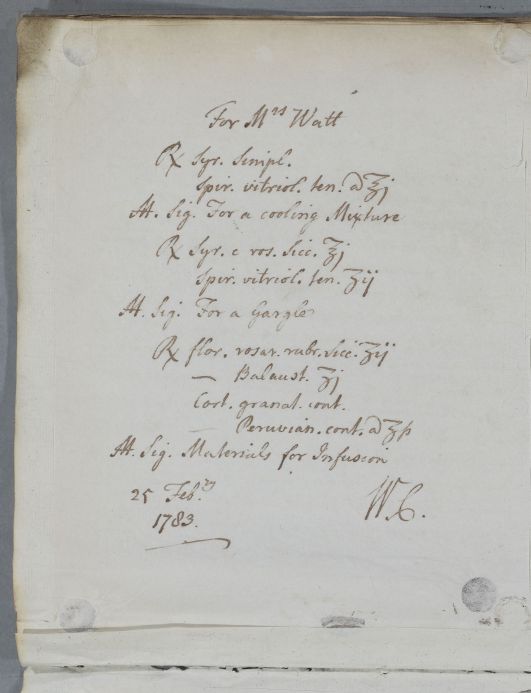 For Mrs Watt
℞ Syr. Simpl.
Spir. vitriol. ten. a ʒj
M. Sig. For a cooling Mixture
℞ Syr. e ros. Sicc. ℥j
Spir. vitriol. ten. ʒij
M. Sig. For a Gargle
℞ flor. rosar. rubr. Sicc. ʒij
— Balaust. ʒj
Cort. granat. cont.
— Peruvian. cont. a ʒß
M. Sig. Materials for Infusion
25 Febry
1783.
W.C.